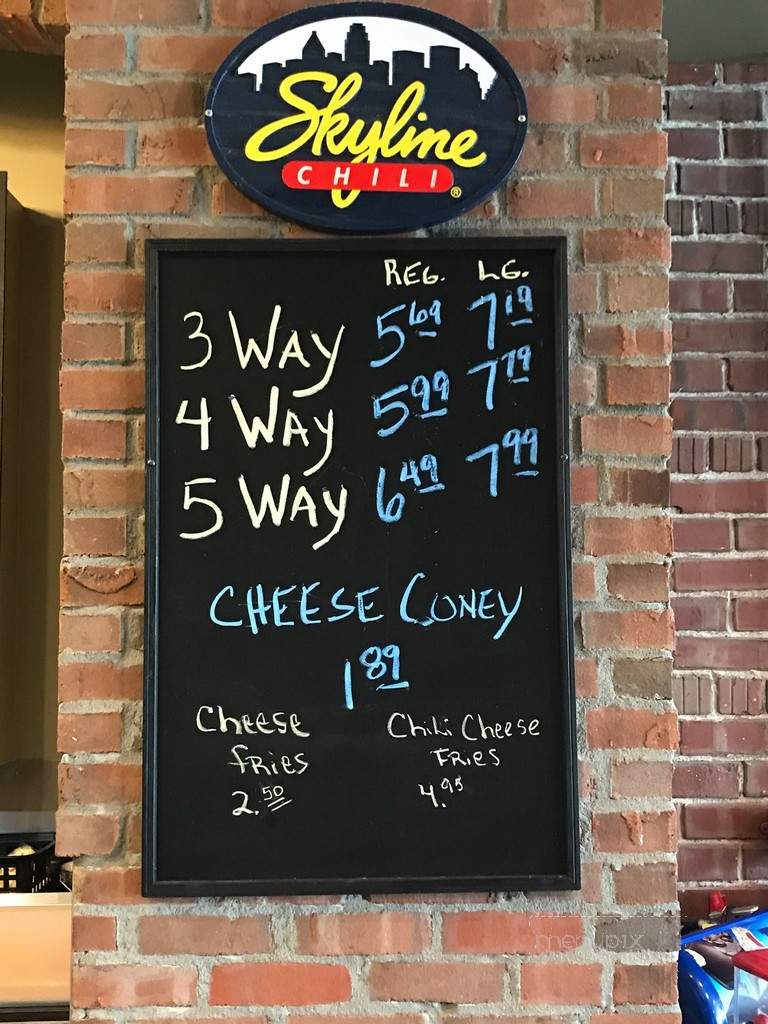 Skyline
CHILI®
REG. LG.
3 WAY 5 69 7 19
4 WAY 5 99 7 79
5 WAY 6 49 7 99
CHEESE CONEY
1 89
Cheese
fries
2.50
Chili Cheese
Fries
4.95
menupix